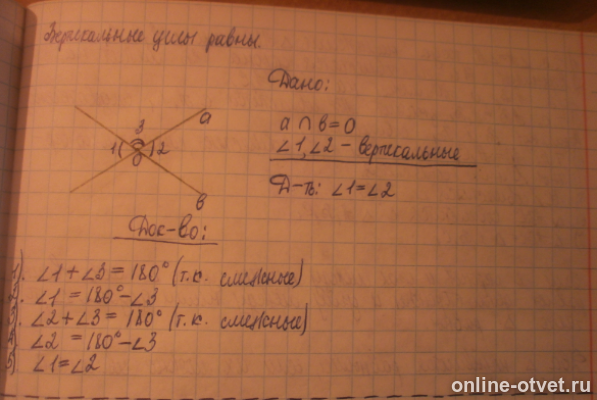 Вертикальные углы равны.
Дано:
a ∩ b = O
∠1, ∠2 - вертикальные
Д-ть: ∠1=∠2
3
a
1
2
O
b
Док-во:
1). ∠1 + ∠3 = 180° (т.к. смежные)
2). ∠1 = 180° - ∠3
3). ∠2 + ∠3 = 180° (т.к. смежные)
4). ∠2 = 180° - ∠3
5). ∠1 = ∠2
online-otvet.ru